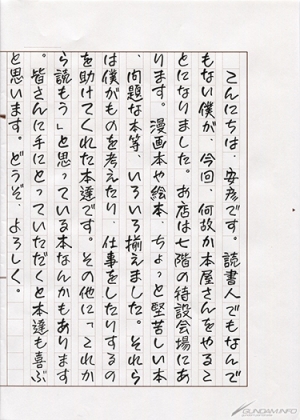 こんにちは、安彦です。読書人でもなんで
もない僕が、今回、何故か本屋さんをやるこ
とになりました。お店は七階の特設会場にあ
ります。漫画本や絵本、ちょっと堅苦しい本
、問題な本等、いろいろ揃えました。それら
は僕がものを考えたり、仕事をしたりするの
を助けてくれた本達です。その他に「これか
ら読もう」と思っている本なんかもあります
。皆さんに手にとっていただくと本達も喜ぶ
と思います。どうぞ、よろしく。
GUNDAM.INFO